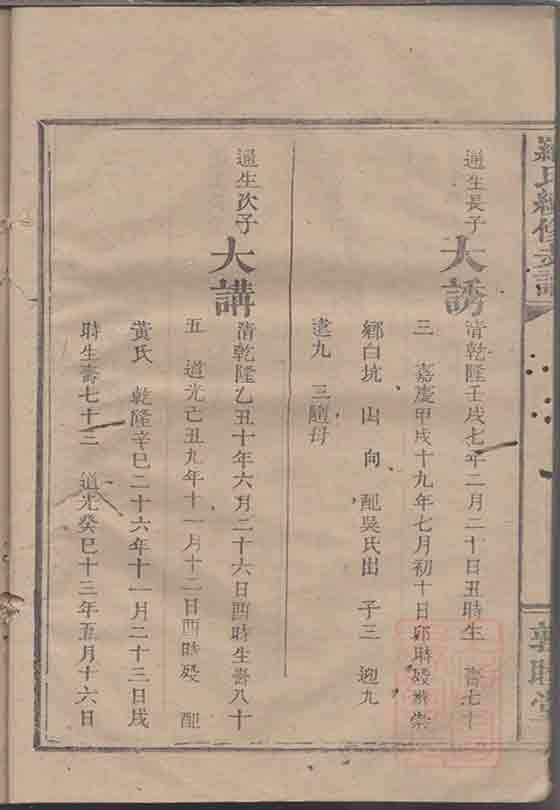 氏續修支譜
通生長子
大誘
清乾隆壬戌七年二月二十日丑時生 壽七十
三 嘉慶甲戌十九年七月初十日卯時歿葬崇
鄉白坑 山 向 配吳氏出 子三 迎九
逮九 三隨母
通生次子
大講
清乾隆乙丑十年六月二十六日酉時生壽八十
五 道光己丑九年十一月十二日酉時歿 配
黃氏 乾隆辛巳二十六年十一月二十三日戌
時生壽七十三 道光癸巳十三年五月十六日